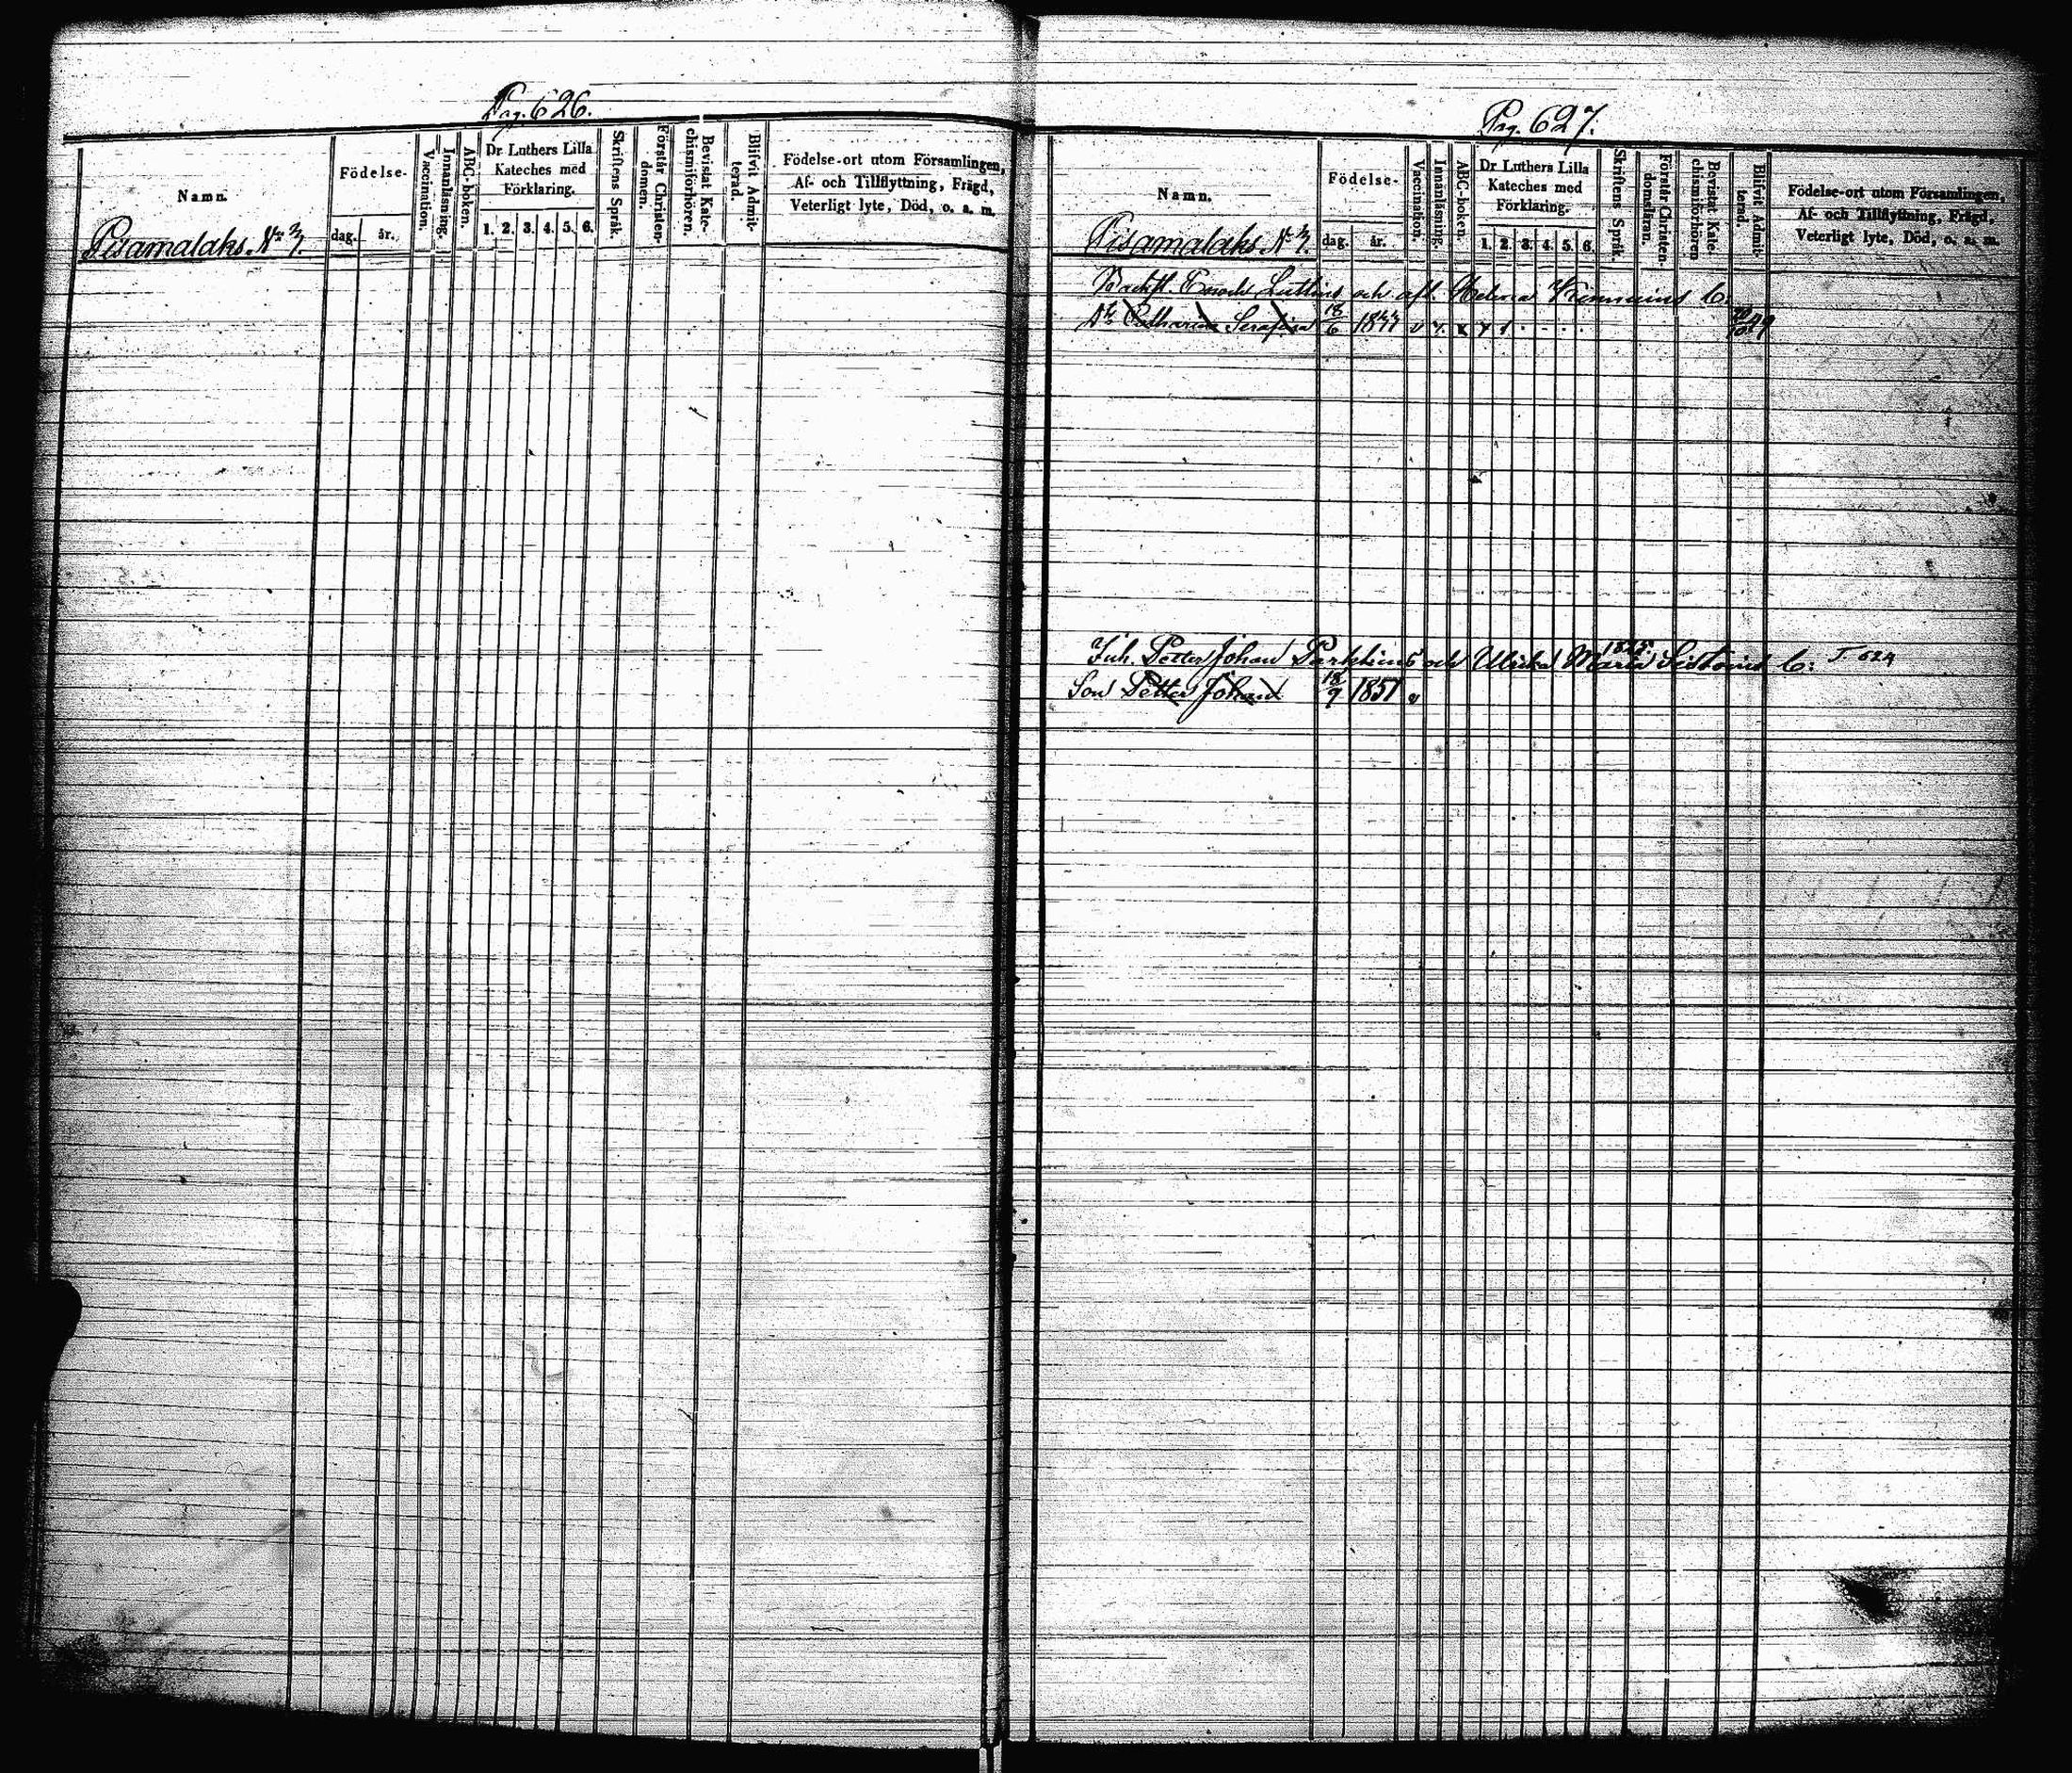 Pag. 626.
Namn.
Födelse-
dag. år.
Vaccination.
Innanläsning.
ABC-boken.
Dr Luthers Lilla
Kateches med
Förklaring.
1. 2. 3. 4. 5. 6.
Skriftens Språk.
Förstår Christen-
domen.
Bevistat Kate-
chismiförhören.
Blifvit Admit-
terad.
Födelse-ort utom Församlingen,
Af- och Tillflyttning, Frägd,
Veterligt lyte, Död, o. a. m.
Pisamalaks. No 3/7.
Pag. 627.
Namn.
Födelse-
dag. år.
Vaccination.
Innanläsning.
ABC-boken.
Dr Luthers Lilla
Kateches med
Förklaring.
1. 2. 3. 4. 5. 6.
Skriftens Språk.
Förstår Christen-
domsläran.
Bevistat Kate-
chismiförhören
Blifvit Admit-
terad.
Födelse-ort utom Församlingen,
Af- och Tillflyttning, Frägd,
Veterligt lyte, Död, o. a. m.
Pisamalaks. No 3/7.
Enoch och Helena
Dr Catharina Serafina 18/6 1844
Inh. Petter Johan och Ulrika Maria 1825 C: T. 624
Son Petter Johan 18/9 1851 v